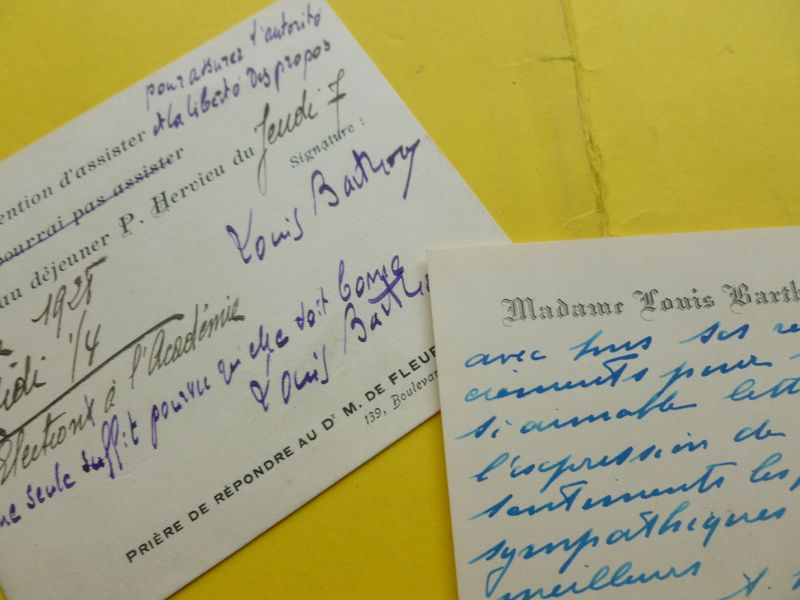 pour assurer l'autorité
et la liberté des propos
ention d'assister
pourrai pas assister
au déjeuner P. Hervieu du Jeudi 7
Signature :
Louis Barthou
1925
idi 1/4
Elections à l'Académie
ne seule suffit pourvu qu'elle soit bonne
Louis Barthou
PRIÈRE DE RÉPONDRE AU Dr M. DE FLEUR
139, Boulevar
Madame Louis Barth
avec tous ses re
ciements pour
si aimable lett
l'expression de
sentiments les
sympathiques
meilleurs